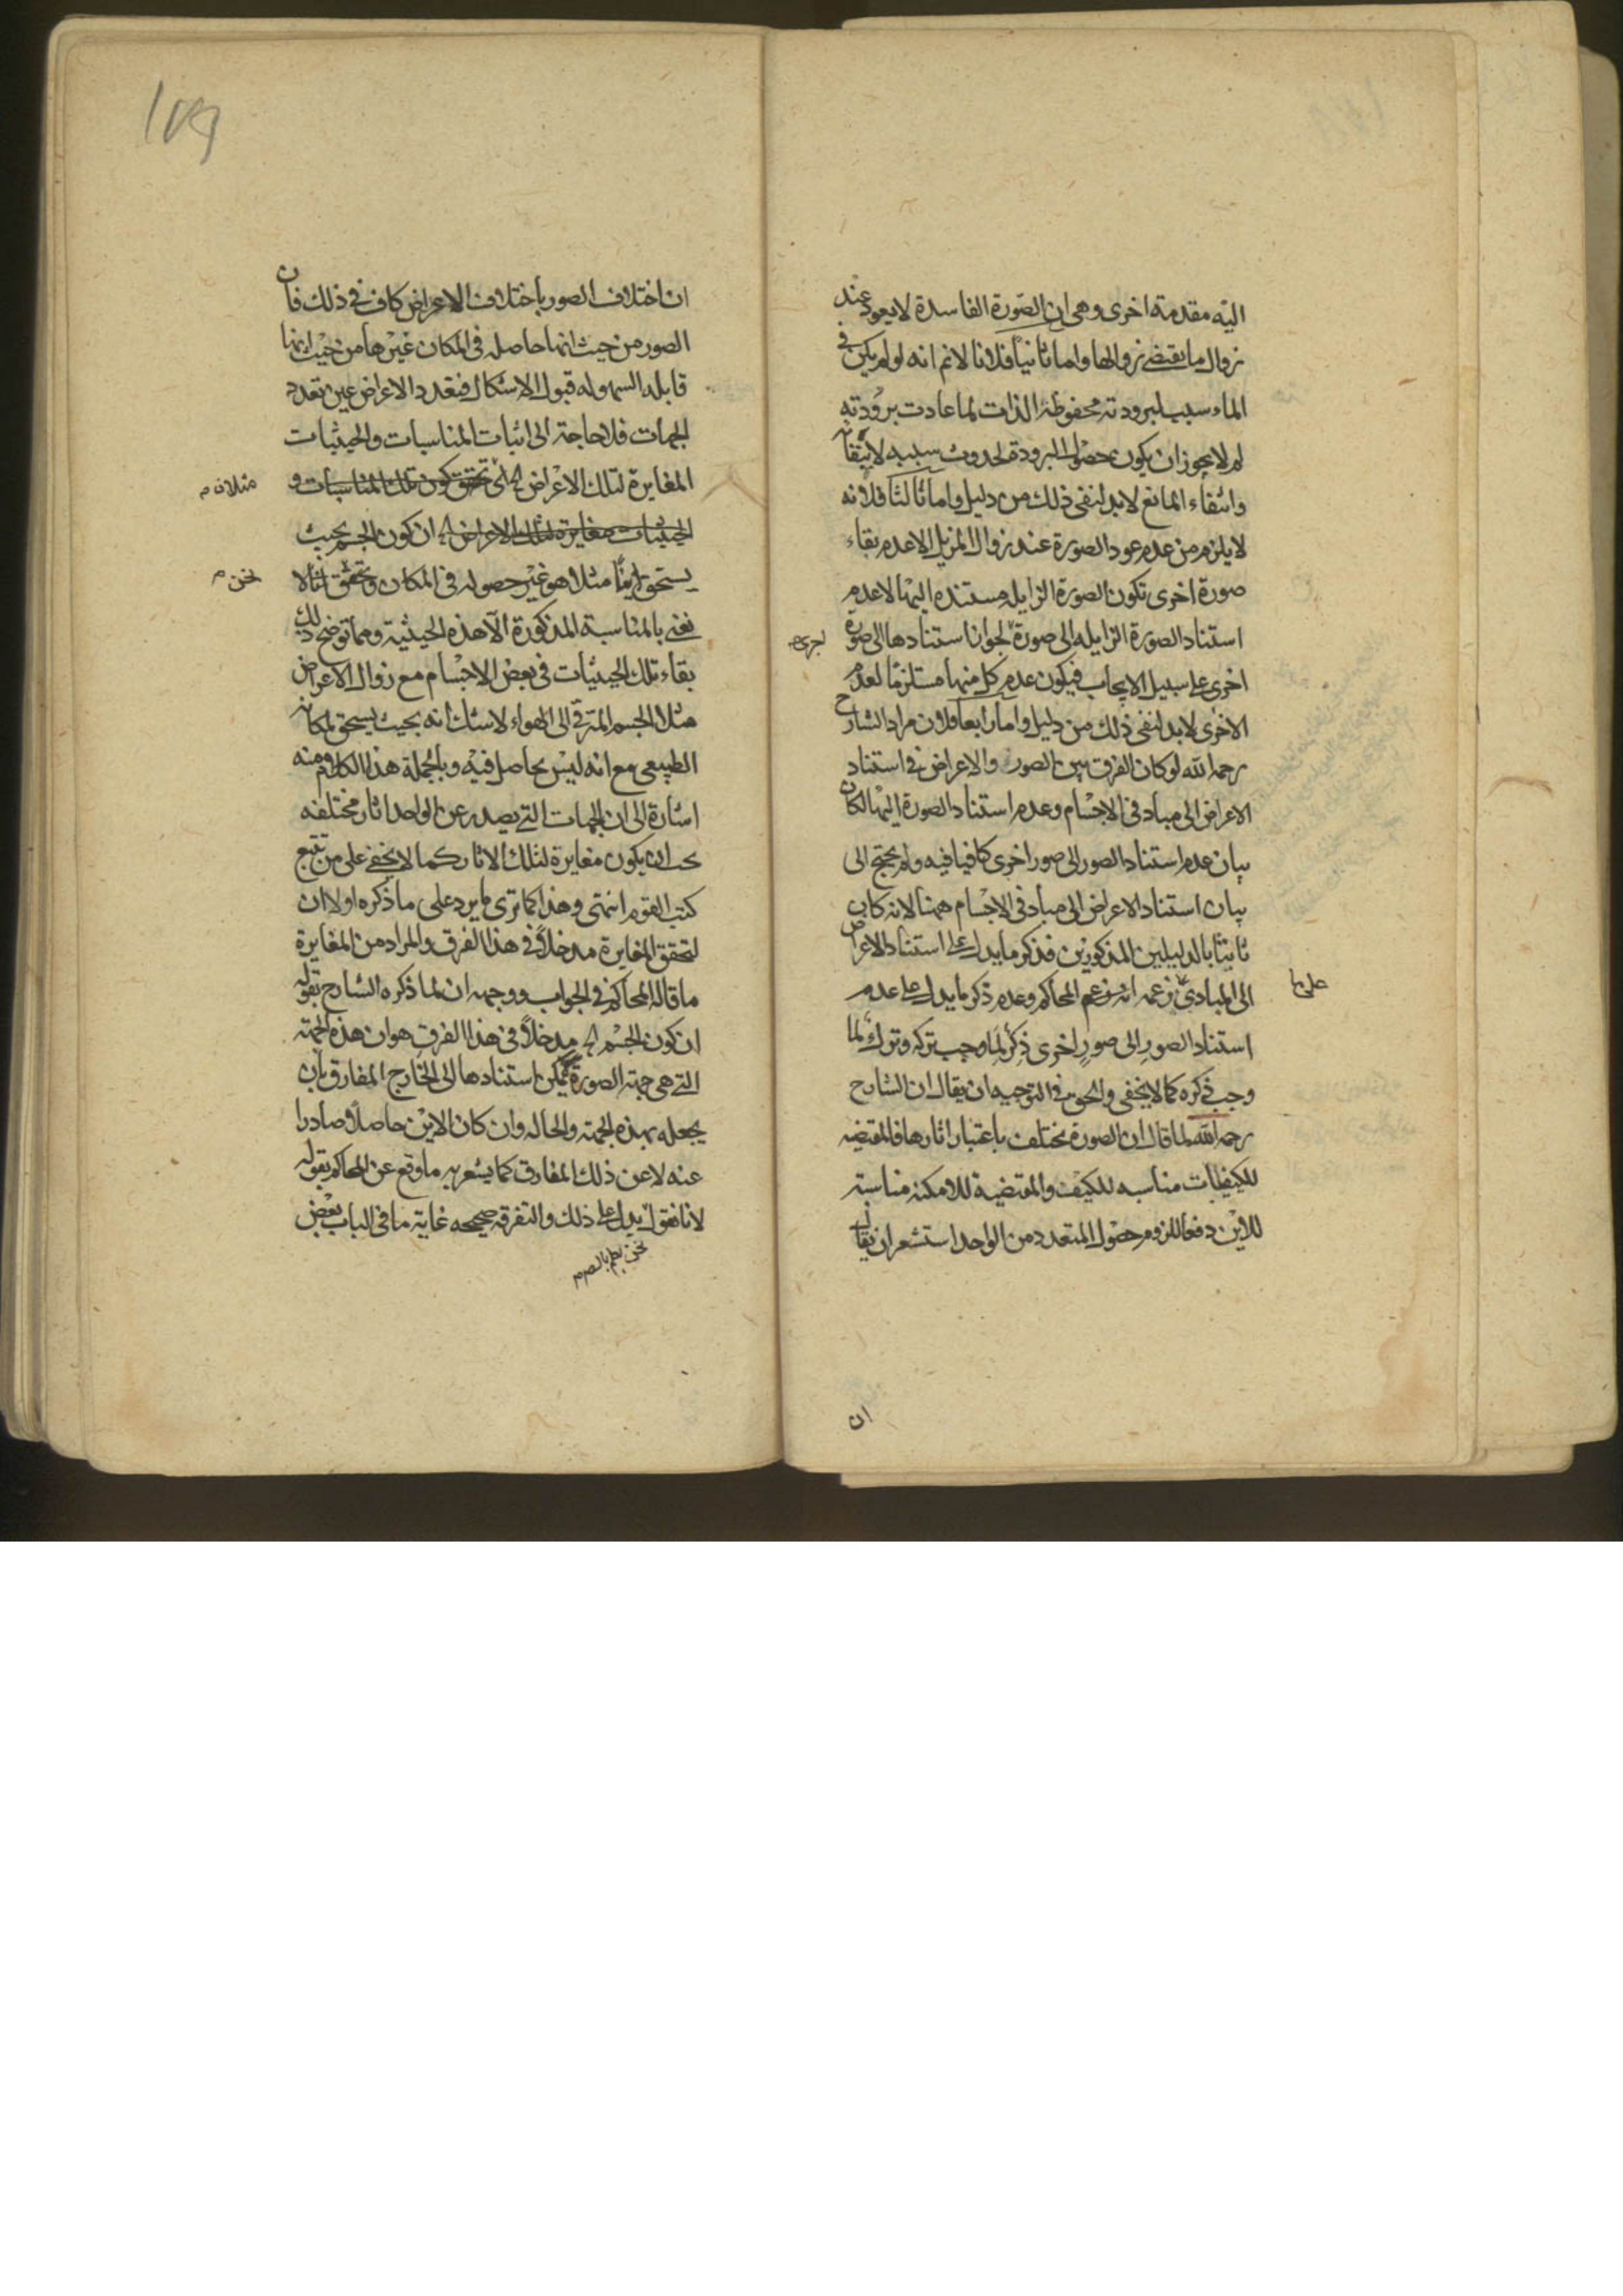 اليه مقدمة اخرى وهى ان الصورة الفاسدة لا يعود عند
زوال ما يقتضى زوالها واما ثانيا فلانا لانم انه لو لم يكن فى
الماء سبب لبرودته محفوظة الذات لما عادت برودته
لم لا يجوز ان يكون حصول البرودة لحدوث سببه لا يتفا
وانتفاء المانع لابد لنفى ذلك من دليل واما ثالثا فلانه
لا يلزم من عدم عود الصورة عند زوال المزيل الا عدم بقاء
صورة اخرى تكون الصورة الزايله مستنده اليها لا عدم
استناد الصورة الزايله الى صورة لجواز استنادها الى صورة
اخرى
اخرى على سبيل الايجاب فيكون عدم كل منهما مستلزما لعدم
الاخرى لابد لنفى ذلك من دليل واما رابعا فلان مراد الشارح
رحمه الله لو كان الفرق بين الصور والاعراض فى استناد
الاعراض الى مباد فى الاجسام وعدم استناد الصورة اليها لكان
بيان عدم استناد الصور الى صور اخرى كافيا فيه ولم يحتج الى
بيان استناد الاعراض الى مباد فى الاجسام ههنا لانه كان
ثابتا بالدليلين المذكورين فذكر ما يدل على استناد الاعراض
الى المبادى زعمه المحاكم وعدم ذكر ما يدل على عدم
على ما
استناد الصور الى صور اخرى ذكر لما وجب تركه وترك لما
وجب ذكره كما لا يخفى والحق فى التوجيه ان يقال ان الشارح
رحمه الله لما قال ان الصورة تختلف باعتبار اثارها فالمقتضيه
للكيفيات مناسبه للكيف والمقتضية للامكنة مناسبة
للاين دفعا للزوم حصول المتعدد من الواحد استشعر ان يقال
ان
ان اختلاف الصور باختلاف الاعراض كاف فى ذلك فان
الصور من حيث انها حاصله فى المكان غيرها من حيث انها
قابله السهوله قبول الاشكال فتعدد الاعراض عين تعدد
الجهات فلا حاجة الى اثبات المناسبات والحيثيات
المغايرة لتلك الاعراض تحقق كون تلك المناسبات و
مثلا
الحيثيات مغايرة لتلك الاعراض ان كون الجسم بحيث
يستحق اينا مثلا هو غير حصوله فى المكان وتحقق
نحن
نعنى بالمناسبة المذكورة الا هذه الحيثية ومما توضح ذلك
بقاء تلك الحيثيات فى بعض الاجسام مع زوال الاعراض
مثلا الجسم المترقى الى الهواء لا شك انه بحيث يستحق لمكانه
الطبيعى مع انه ليس بحاصل فيه وبالجملة هذا الكلام منه
اشارة الى ان الجهات التى يصدر عن الواحد اثار مختلفه
يجب ان يكون مغايرة لتلك الاثار كما لا يخفى على من تتبع
كتب القوم انتهى وهذا كما ترى ما يرد على ما ذكره اولا ان
لتحقق المغايرة مدخلا فى هذا الفرق والمراد من المغايرة
ما قاله المحاكم فى الجواب ووجهه ان لما ذكره الشارح بقوله
ان كون الجسم الخ مدخلا فى هذا الفرق هو ان هذه الجهة
التى هى جهة الصورة يمكن استنادها الى الخارج المفارق بان
يجعله بهذه الجهة والحاله وان كان الاين حاصلا وصادرا
عنه لا عن ذلك المفارق كما يشعر به ما وقع عن المحاكم بقوله
لانا نقول يدل على ذلك والتفرقه صحيحه غاية ما فى الباب بعض